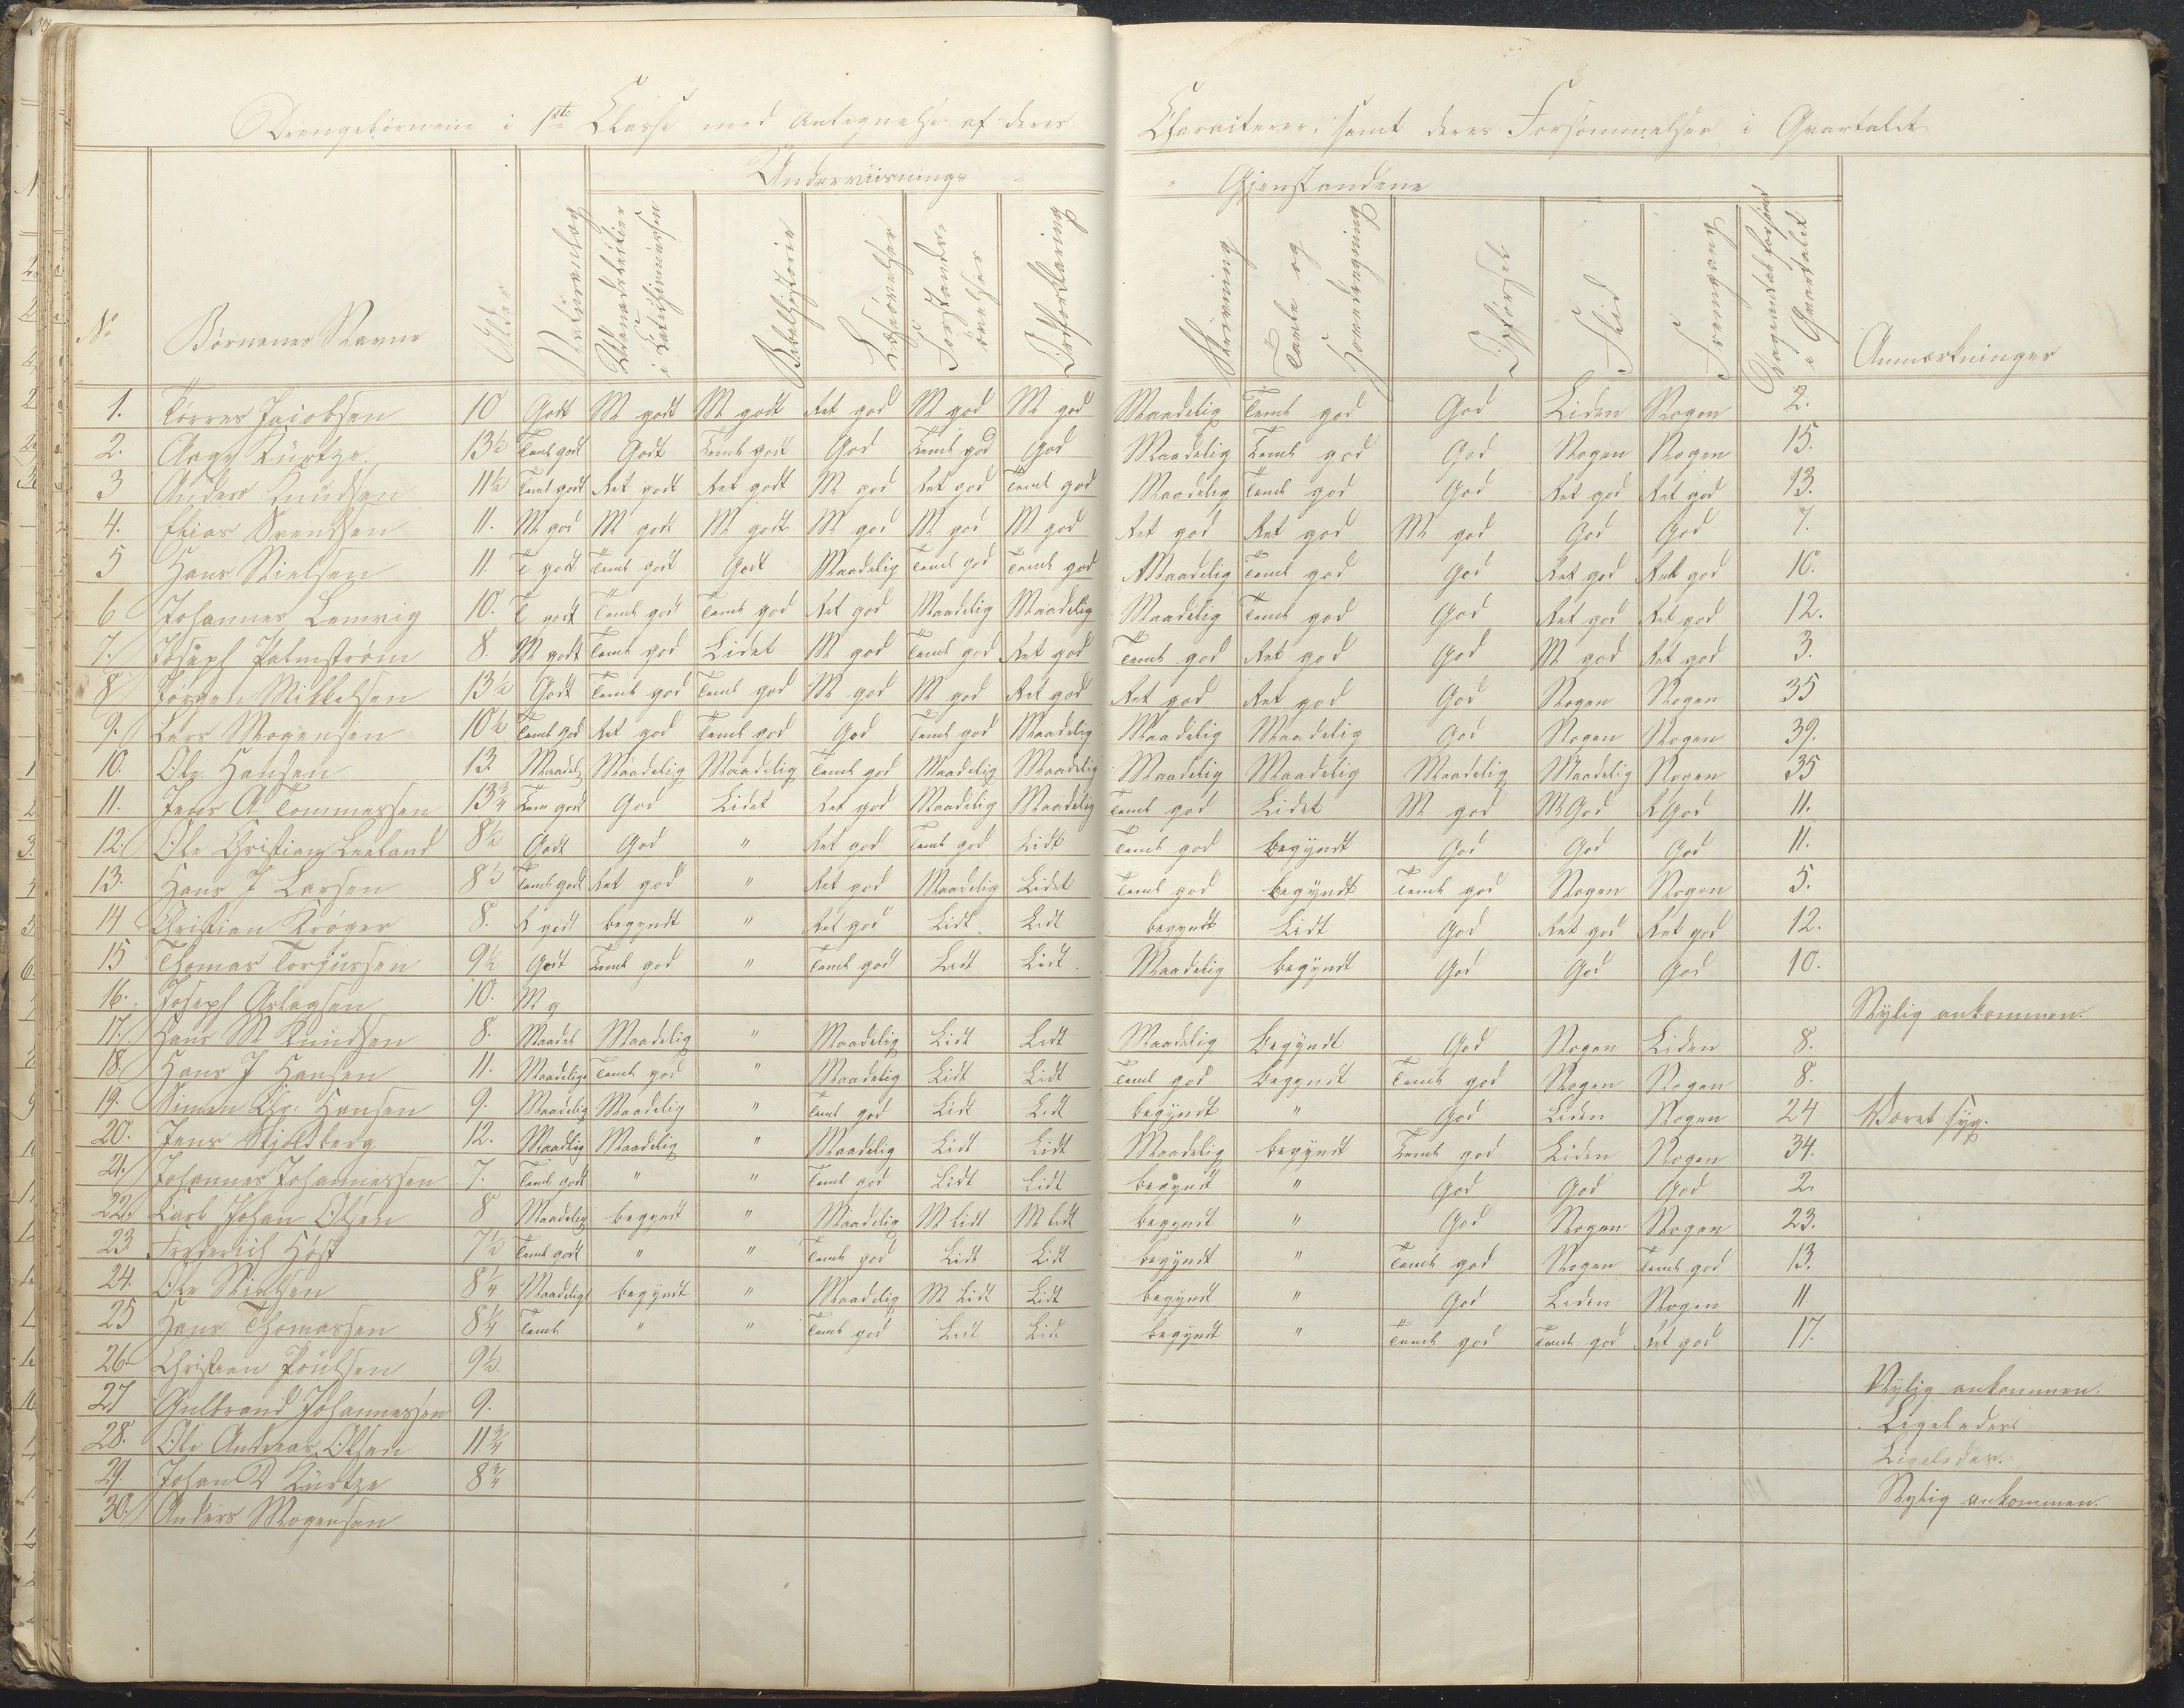 Drengebørnene i 1ste Classe med Antegnelse af deres Characterer, samt deres Forsømmelser i Qvartalet
Underviisnings- Gjenstandene
No Børnenes Navne Alder Bibelhistorie Læseøvelser Forstands-øvelser Skrivning Tavle og Hovedregning Opførsel Flid Fremgang i Qvartalet Anmærkninger
1. Jacobsen 10 Godt M godt M godt Ret god M god M god Maadelig Teml god God Liden Nogen 2.
2. Aage Kürtze 13½ Teml godt Godt Teml godt God Teml god God Maadelig Teml god God Nogen Nogen 15.
3 Anders Knudsen 11½ Teml godt Ret godt Ret godt M god Ret god Teml god Maadelig Teml god God Ret god Ret god 13.
4. Elias Svendsen 11. M god M godt M godt M god M god M god Ret god Ret god M god God God 7.
5 Hans Nielsen 11 T godt Teml godt Godt Maadelig Teml god Teml god Maadelig Teml god God Ret god Ret god 16.
6 Johannes Lemvig 10. T godt Teml godt Teml god Ret god Maadelig Maadelig Maadelig Teml god God Ret god Ret god 12.
7. Joseph Palmstrøm 8. M godt Teml god Lidet M god Teml god Ret god Teml god Ret god God M god Ret god 3.
8 Jørgen Mikkelsen 13½ Godt Teml god Teml god M god M god Ret god Ret god Ret god God Nogen Nogen 35
9. Lars Mogensen 10½ Teml god Ret god Teml god God Teml god Maadelig Maadelig Maadelig God Nogen Nogen 39.
10. Ole Hansen 13. Maadel Maadelig Maadelig Teml god Maadelig Maadelig Maadelig Maadelig Maadelig Maadelig Nogen 35
11. Jens A Tommessen 13¾ Tem godt God Lidet Ret god Maadelig Maadelig Teml god Lidet M god M God R God 11.
12. Ole Christian 8½ Godt God " Ret god Teml god Lidt Teml god begyndt God God God 11.
13. Hans J Larsen 8½ Teml godt Ret god " Ret god Maadelig Lidet Teml god begyndt Teml god Nogen Nogen 5.
14 Christian Krøger 8. R godt begyndt " Ret god Lidt Lidt begyndt Lidt God Ret god Ret god 12.
15 Thomas Torjussen 9½ Godt Teml god " Teml god Lidt Lidt Maadelig begyndt God God God 10.
16. Joseph Aslagsen 10. M g Nylig ankommen.
17. Hans M Knudsen 8. Maadel Maadelig " Maadelig Lidt Lidt Maadelig Begyndt God Nogen Liden 8.
18. Hans J Hansen 11. Maadelig Teml god " Maadelig Lidt Lidt Teml god Begyndt Teml god Nogen Nogen 8.
19. Simen Chr: Hansen 9. Maadelig Maadelig " Teml god Lidt Lidt begyndt " God Liden Nogen 24 Været syg.
20. Jens Skjoldberg 12. Maadelig Maadelig " Maadelig Lidt Lidt Maadelig begyndt Teml god Liden Nogen 34.
21. Johannes Johannessen 7. Teml godt " " Teml god Lidt Lidt begyndt " God God God 2.
22. Carl Johan Olsen 8 Maadelig begyndt " Maadelig M lidt M lidt begyndt " God Nogen Nogen 23.
23 Frederich Høst 7½ Teml godt " " Teml god Lidt Lidt begyndt " Teml god Nogen Teml god 13.
24. Ole Nielsen 8¼ Maadeligt begyndt " Maadelig M Lidt Lidt begyndt " God Liden Nogen 11
25 Hans Thomassen 8¼ Teml " " Teml god Lidt Lidt begyndt " Teml god Teml god Ret god 17.
26 Christian Poulsen 9½ Nylig ankommen.
27 Gulbrand Johannessen 9. Ligeledes.
28. Ole Andreas Olsen 11¾ Ligeledes.
29. Johan D Kürtze 8¾ Nylig ankommen.
30. Anders Mogensen